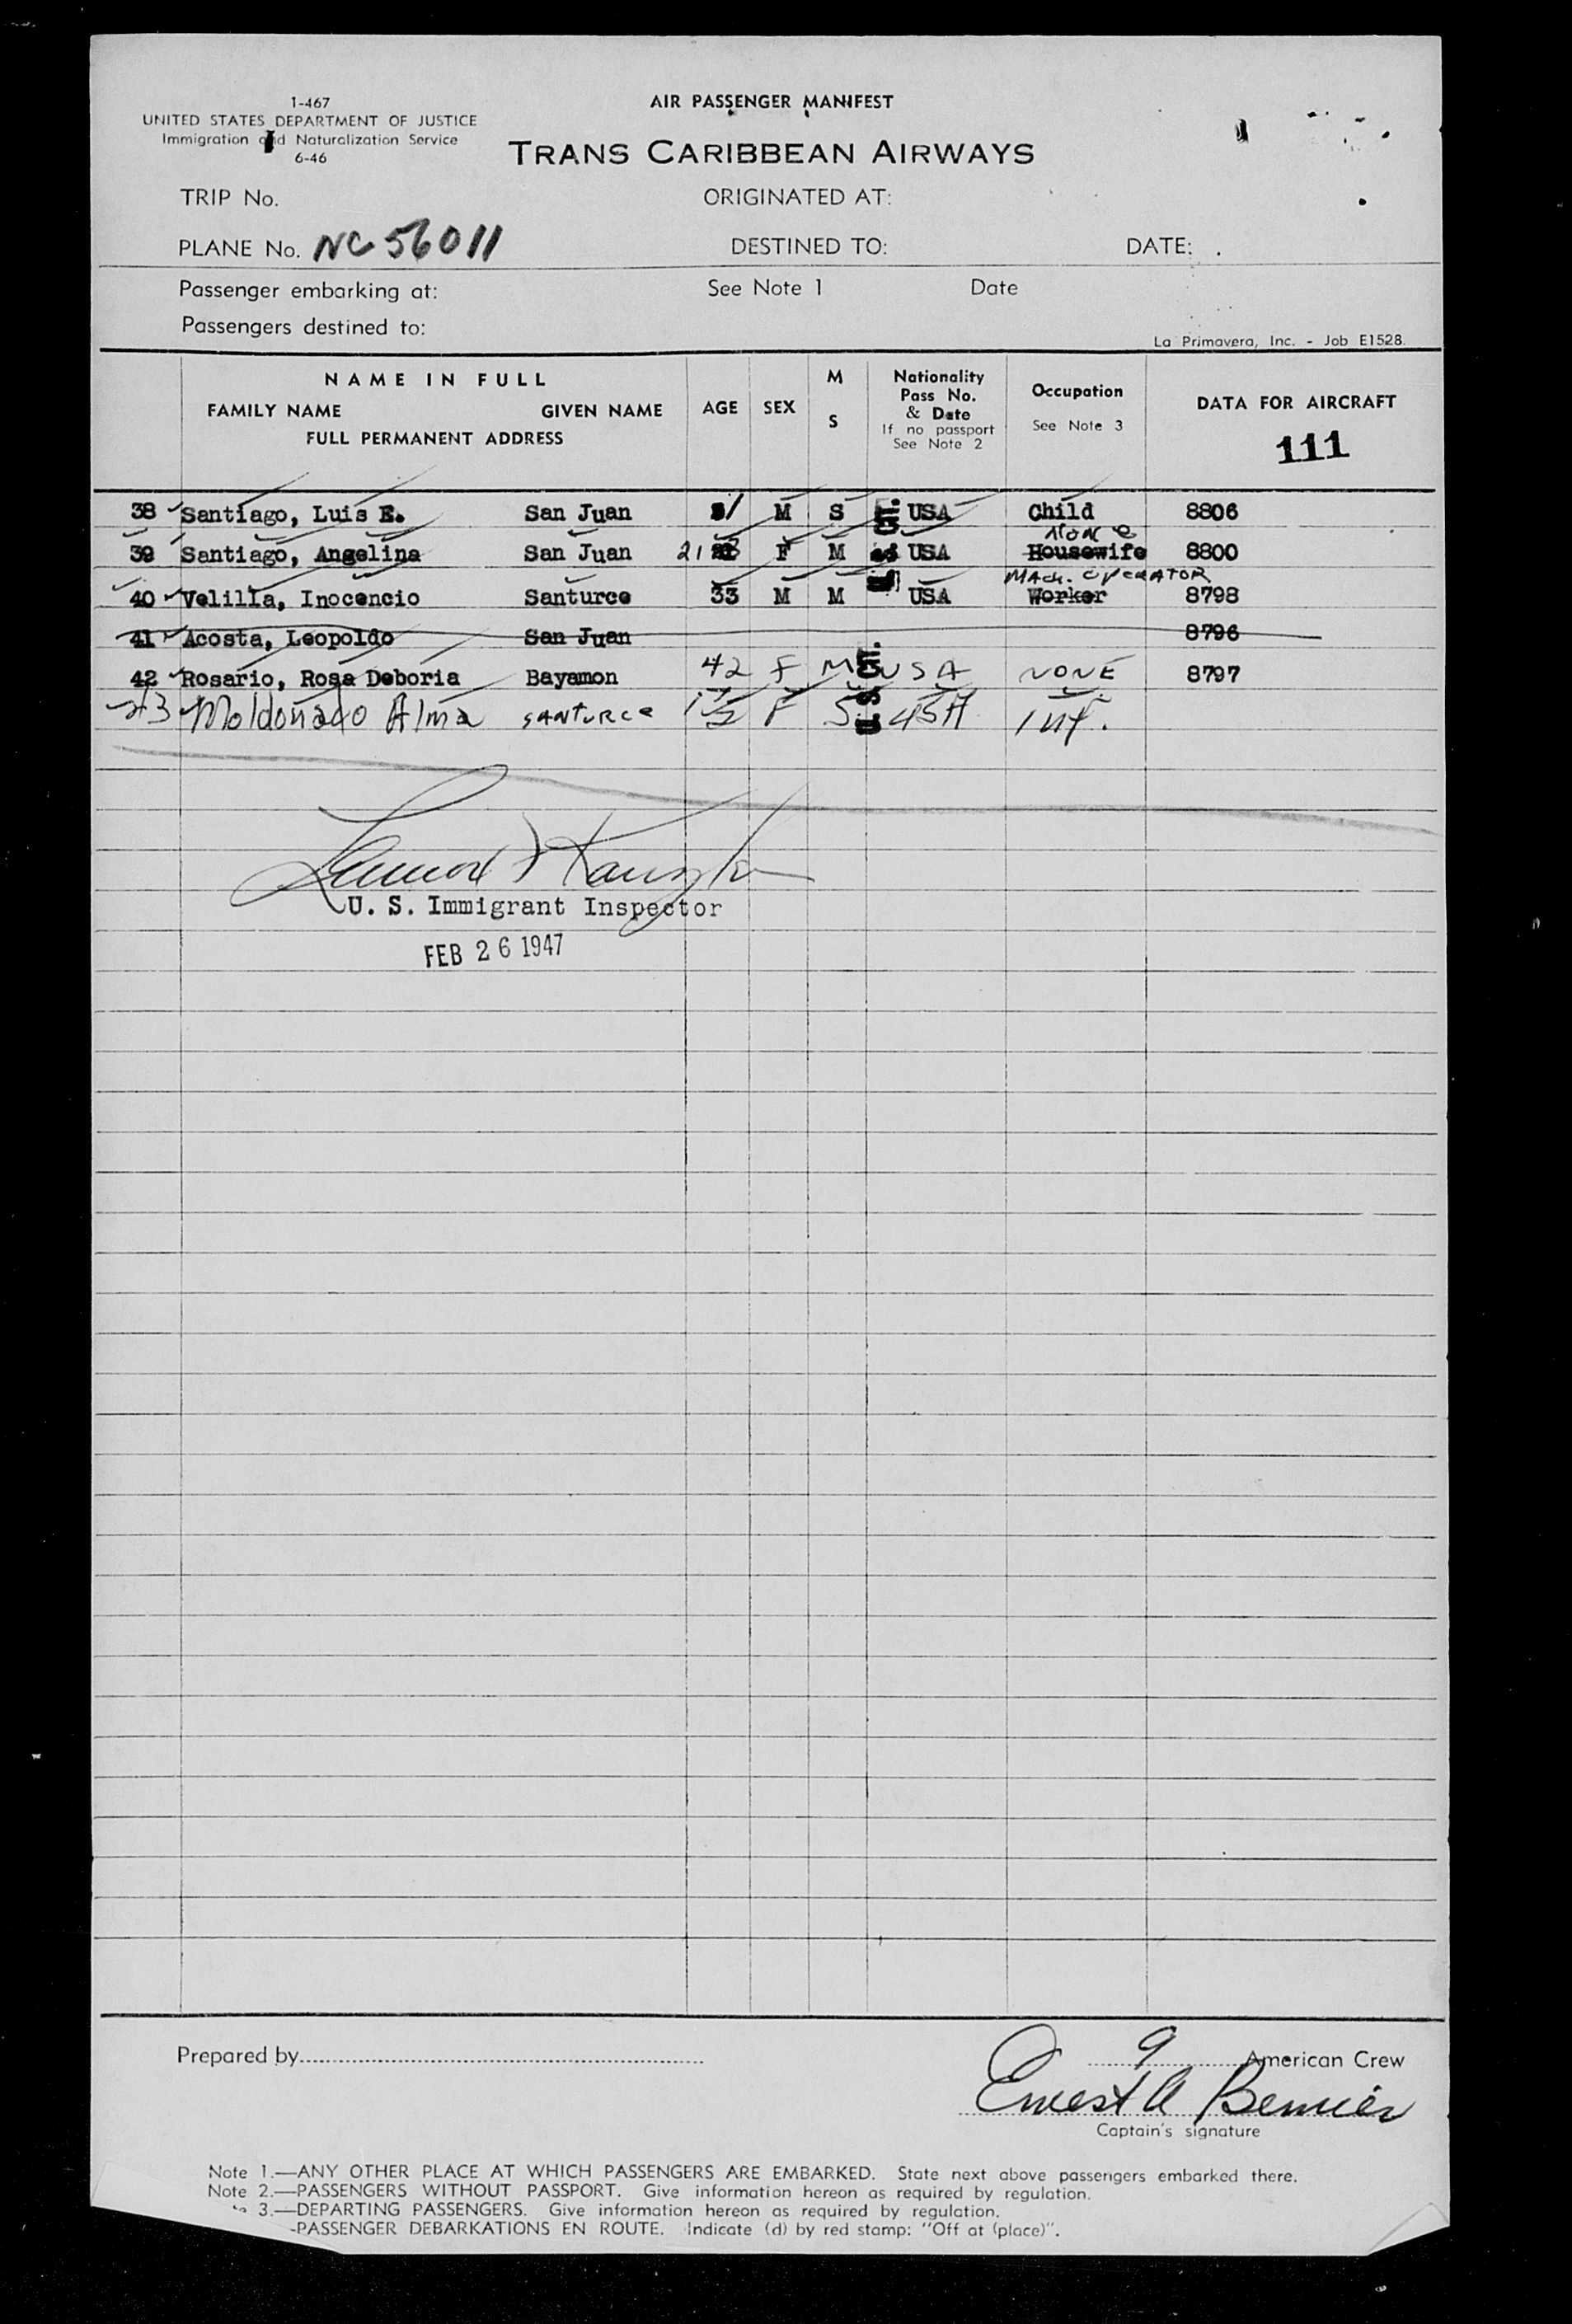 1-467
UNITED STATES DEPARTMENT OF JUSTICE
Immigration and Naturalization Service
6-46
AIR PASSENGER MANIFEST
TRANS CARIBBEAN AIRWAYS
TRIP No. ORIGINATED AT:
PLANE No. NC 56011 DESTINED TO: DATE:
Passenger embarking at: See Note 1 Date
Passengers destined to:
La Primavera, Inc. - Job E1528.
NAME IN FULL
FAMILY NAME GIVEN NAME
FULL PERMANENT ADDRESS
AGE SEX M S
Nationality
Pass No.
& Date
If no passport
See Note 2
Occupation
See Note 3
DATA FOR AIRCRAFT
111
38 Santiago, Luis E. San Juan M S USA Child 8806
None
39 Santiago, Angelina San Juan 21 F M USA Housewife 8800
MACH. OPERATOR
40 Velilla, Inocencio Santurce 33 M M USA Worker 8798
41 Acosta, Leopoldo San Juan 8796
42 Rosario, Rosa Deboria Bayamon 42 F M USA NONE 8797
43 Moldonado Alma SANTURCE 1½ F S USA Inf.
U. S. Immigrant Inspector
FEB 26 1947
Prepared by 9 American Crew
Ernest A Bernier
Captain's signature
Note 1.—ANY OTHER PLACE AT WHICH PASSENGERS ARE EMBARKED. State next above passengers embarked there.
Note 2.—PASSENGERS WITHOUT PASSPORT. Give information hereon as required by regulation.
3.—DEPARTING PASSENGERS. Give information hereon as required by regulation.
-PASSENGER DEBARKATIONS EN ROUTE. Indicate (d) by red stamp: "Off at (place)".